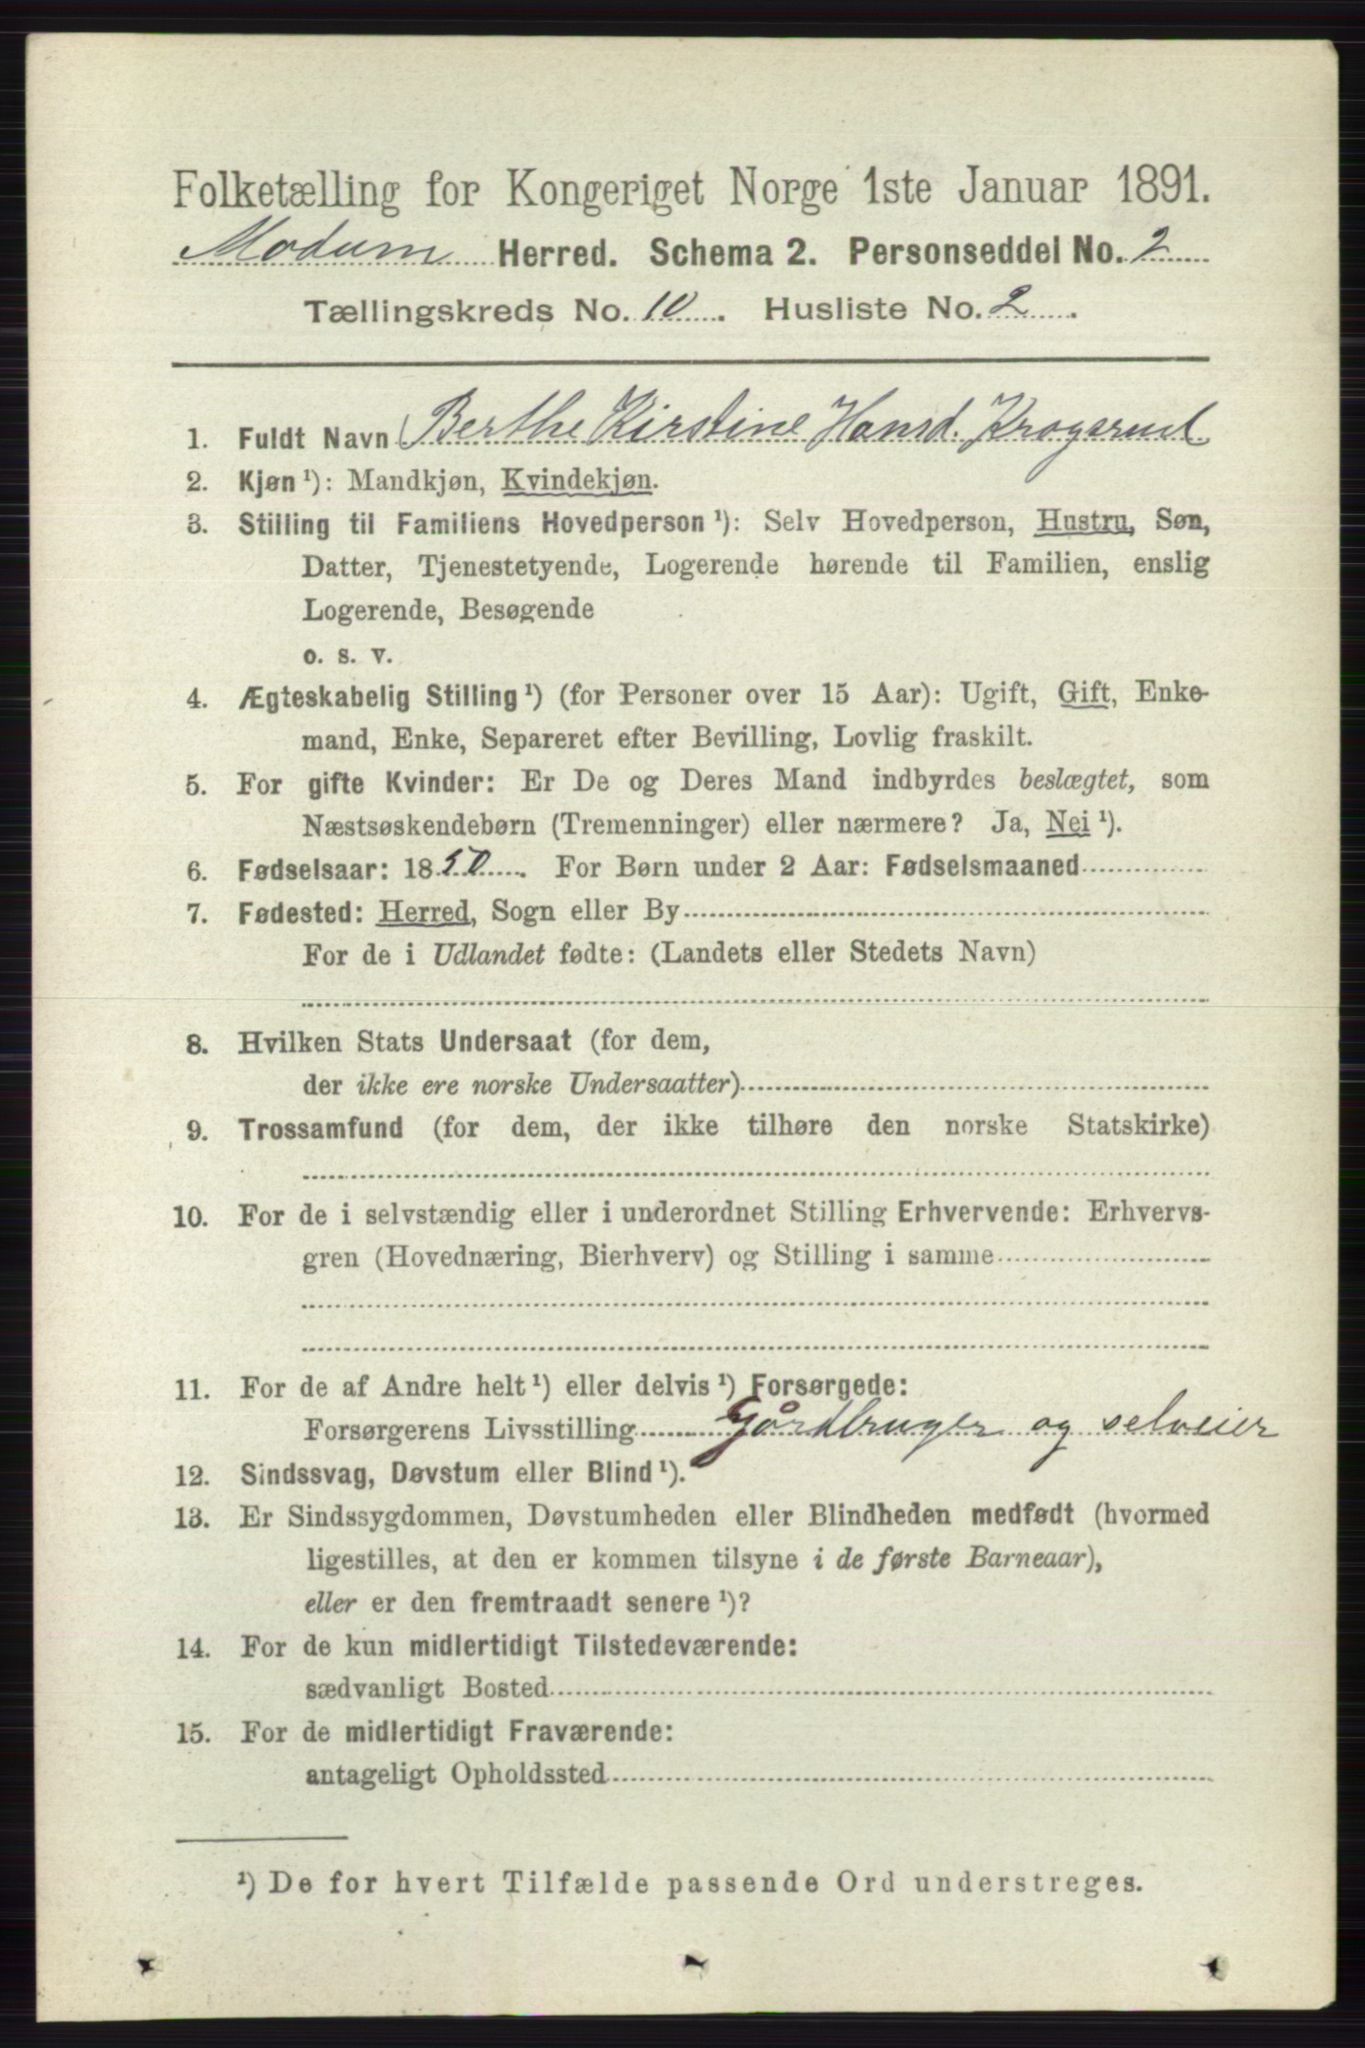 Folketælling for Kongeriget Norge 1ste Januar 1891.
Modum Herred. Schema 2. Personseddel No. 2
Tællingskreds No. 10. Husliste No. 2.
1. Fuldt Navn Berthe Kirstine Hansd. Krogsrud
2. Kjøn ¹): Mandkjøn, Kvindekjøn.
3. Stilling til Familiens Hovedperson ¹): Selv Hovedperson, Hustru, Søn,
Datter, Tjenestetyende, Logerende hørende til Familien, enslig
Logerende, Besøgende
o. s. v.
4. Ægteskabelig Stilling ¹) (for Personer over 15 Aar): Ugift, Gift, Enke-
mand, Enke, Separeret efter Bevilling, Lovlig fraskilt.
5. For gifte Kvinder: Er De og Deres Mand indbyrdes beslægtet, som
Næstsøskendebørn (Tremenninger) eller nærmere? Ja, Nei ¹).
6. Fødselsaar: 1850. For Børn under 2 Aar: Fødselsmaaned
7. Fødested: Herred, Sogn eller By
For de i Udlandet fødte: (Landets eller Stedets Navn)
8. Hvilken Stats Undersaat (for dem,
der ikke ere norske Undersaatter)
9. Trossamfund (for dem, der ikke tilhøre den norske Statskirke)
10. For de i selvstændig eller i underordnet Stilling Erhvervende: Erhvervs-
gren (Hovednæring, Bierhverv) og Stilling i samme
11. For de af Andre helt ¹) eller delvis ¹) Forsørgede:
Forsørgerens Livsstilling Gårdbruger og selveier
12. Sindssvag, Døvstum eller Blind ¹).
13. Er Sindssygdommen, Døvstumheden eller Blindheden medfødt (hvormed
ligestilles, at den er kommen tilsyne i de første Barneaar),
eller er den fremtraadt senere ¹)?
14. For de kun midlertidigt Tilstedeværende:
sædvanligt Bosted
15. For de midlertidigt Fraværende:
antageligt Opholdssted
¹) De for hvert Tilfælde passende Ord understreges.